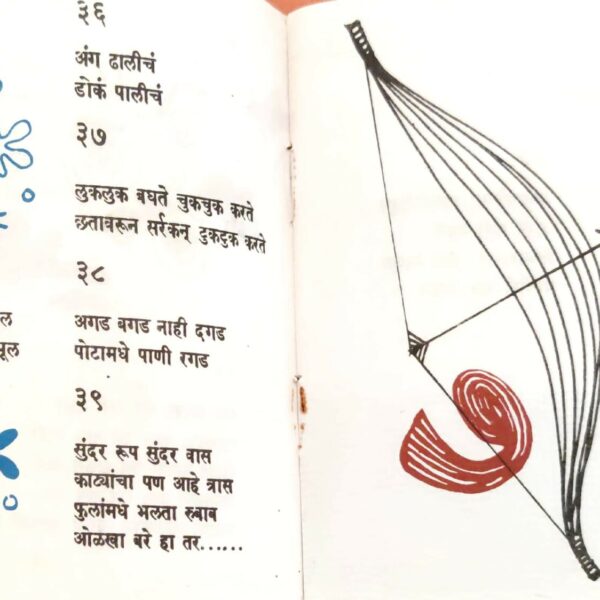 ३६
अंग ढालीचं
डोकं पालीचं
३७
लुकलुक बघते चुकचुक करते
छतावरून सर्रकन् टुकटुक करते
३८
अगड बगड नाही दगड
पोटामधे पाणी रगड
३९
सुंदर रूप सुंदर वास
काट्यांचा पण आहे त्रास
फुलांमधे भलता रुबाब
ओळखा बरे हा तर......